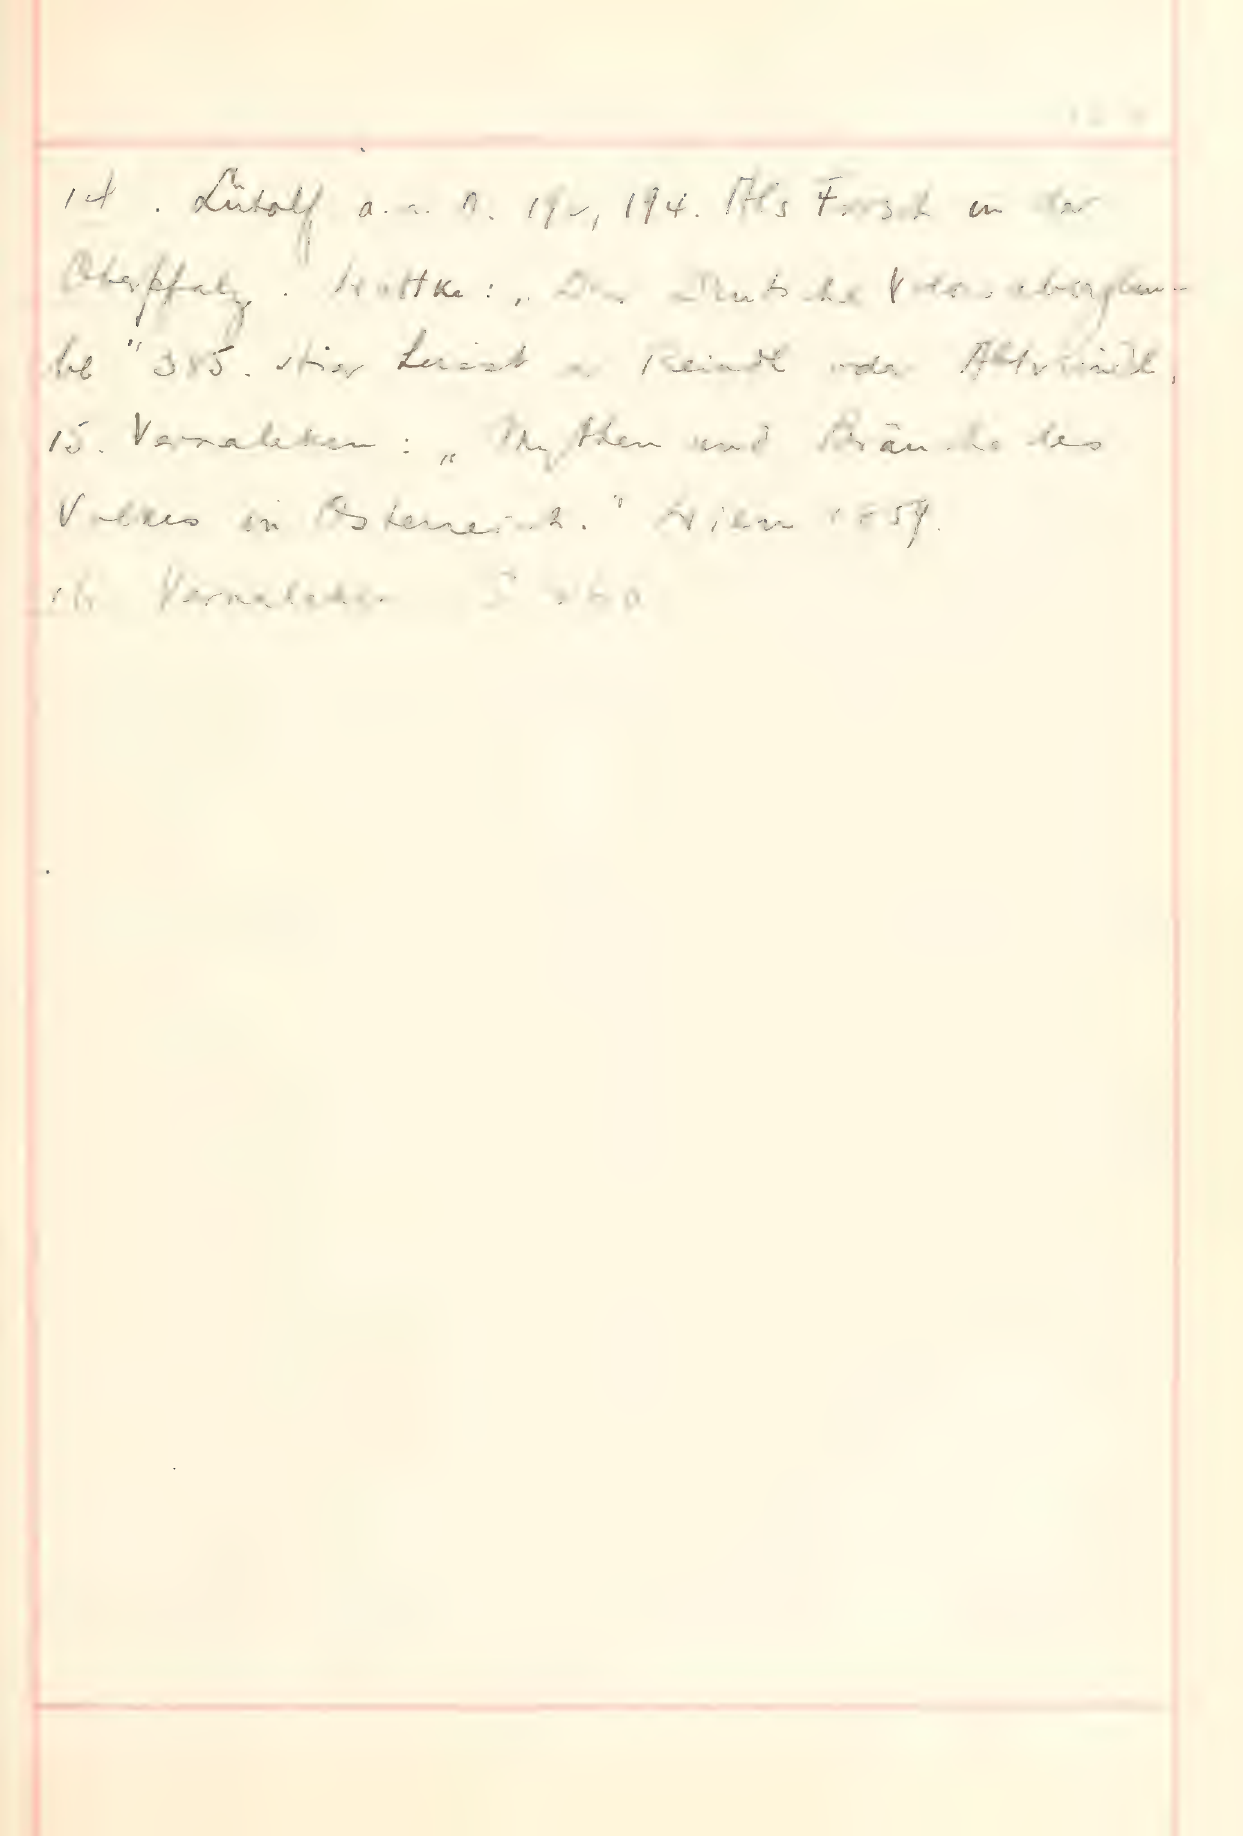 14. Lütolf a. a. O. 192, 194. Als Frosch in der
Oberpfalz. Wuttke: „Der Deutsche Volksaberglau-
be" 385. Hier heisst er
oder
15. Vernaleken: „Mythen und Bräuche des
Volkes in Österreich." Wien 1859.
16 Vernaleken S